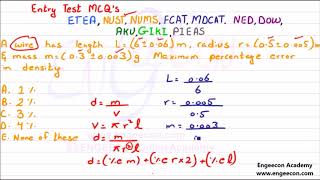 Entry Test MCQ's
ETEA, NUST, NUMS, FCAT, MDCAT. NED, DOW,
AKU, GIKI, PIEAS
A wire has length L = (6 ± 0.06) m, radius r = (0.5 ± 0.005) m
& mass m = (0.3 ± 0.003) g. Maximum percentage error
in density
A. 1 %
B. 2 %
C. 3 %
D. 4 %
E. None of these
d = m/v
v = πr²l
d = m/πr²l
d = (% e m) + (% e r × 2) + (% e l)
L = 0.06/6
r = 0.005/0.5
m = 0.003
Engeecon Academy
www.engeecon.com